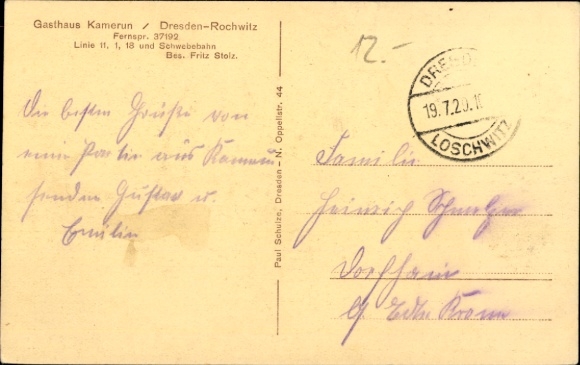 Gasthaus Kamerun / Dresden-Rochwitz
Fernspr. 37192
Linie 11, 1, 18 und Schwebebahn
Bes. Fritz Stolz.
Die besten Grüße von
eine Partie aus Kamerun
senden Gustav u.
Emilie
Paul Schulze, Dresden - N. Oppellstr. 44
12.-
DRESD
19.7.29.10
LOSCHWITZ
Familie
Heinrich
Dorfhain